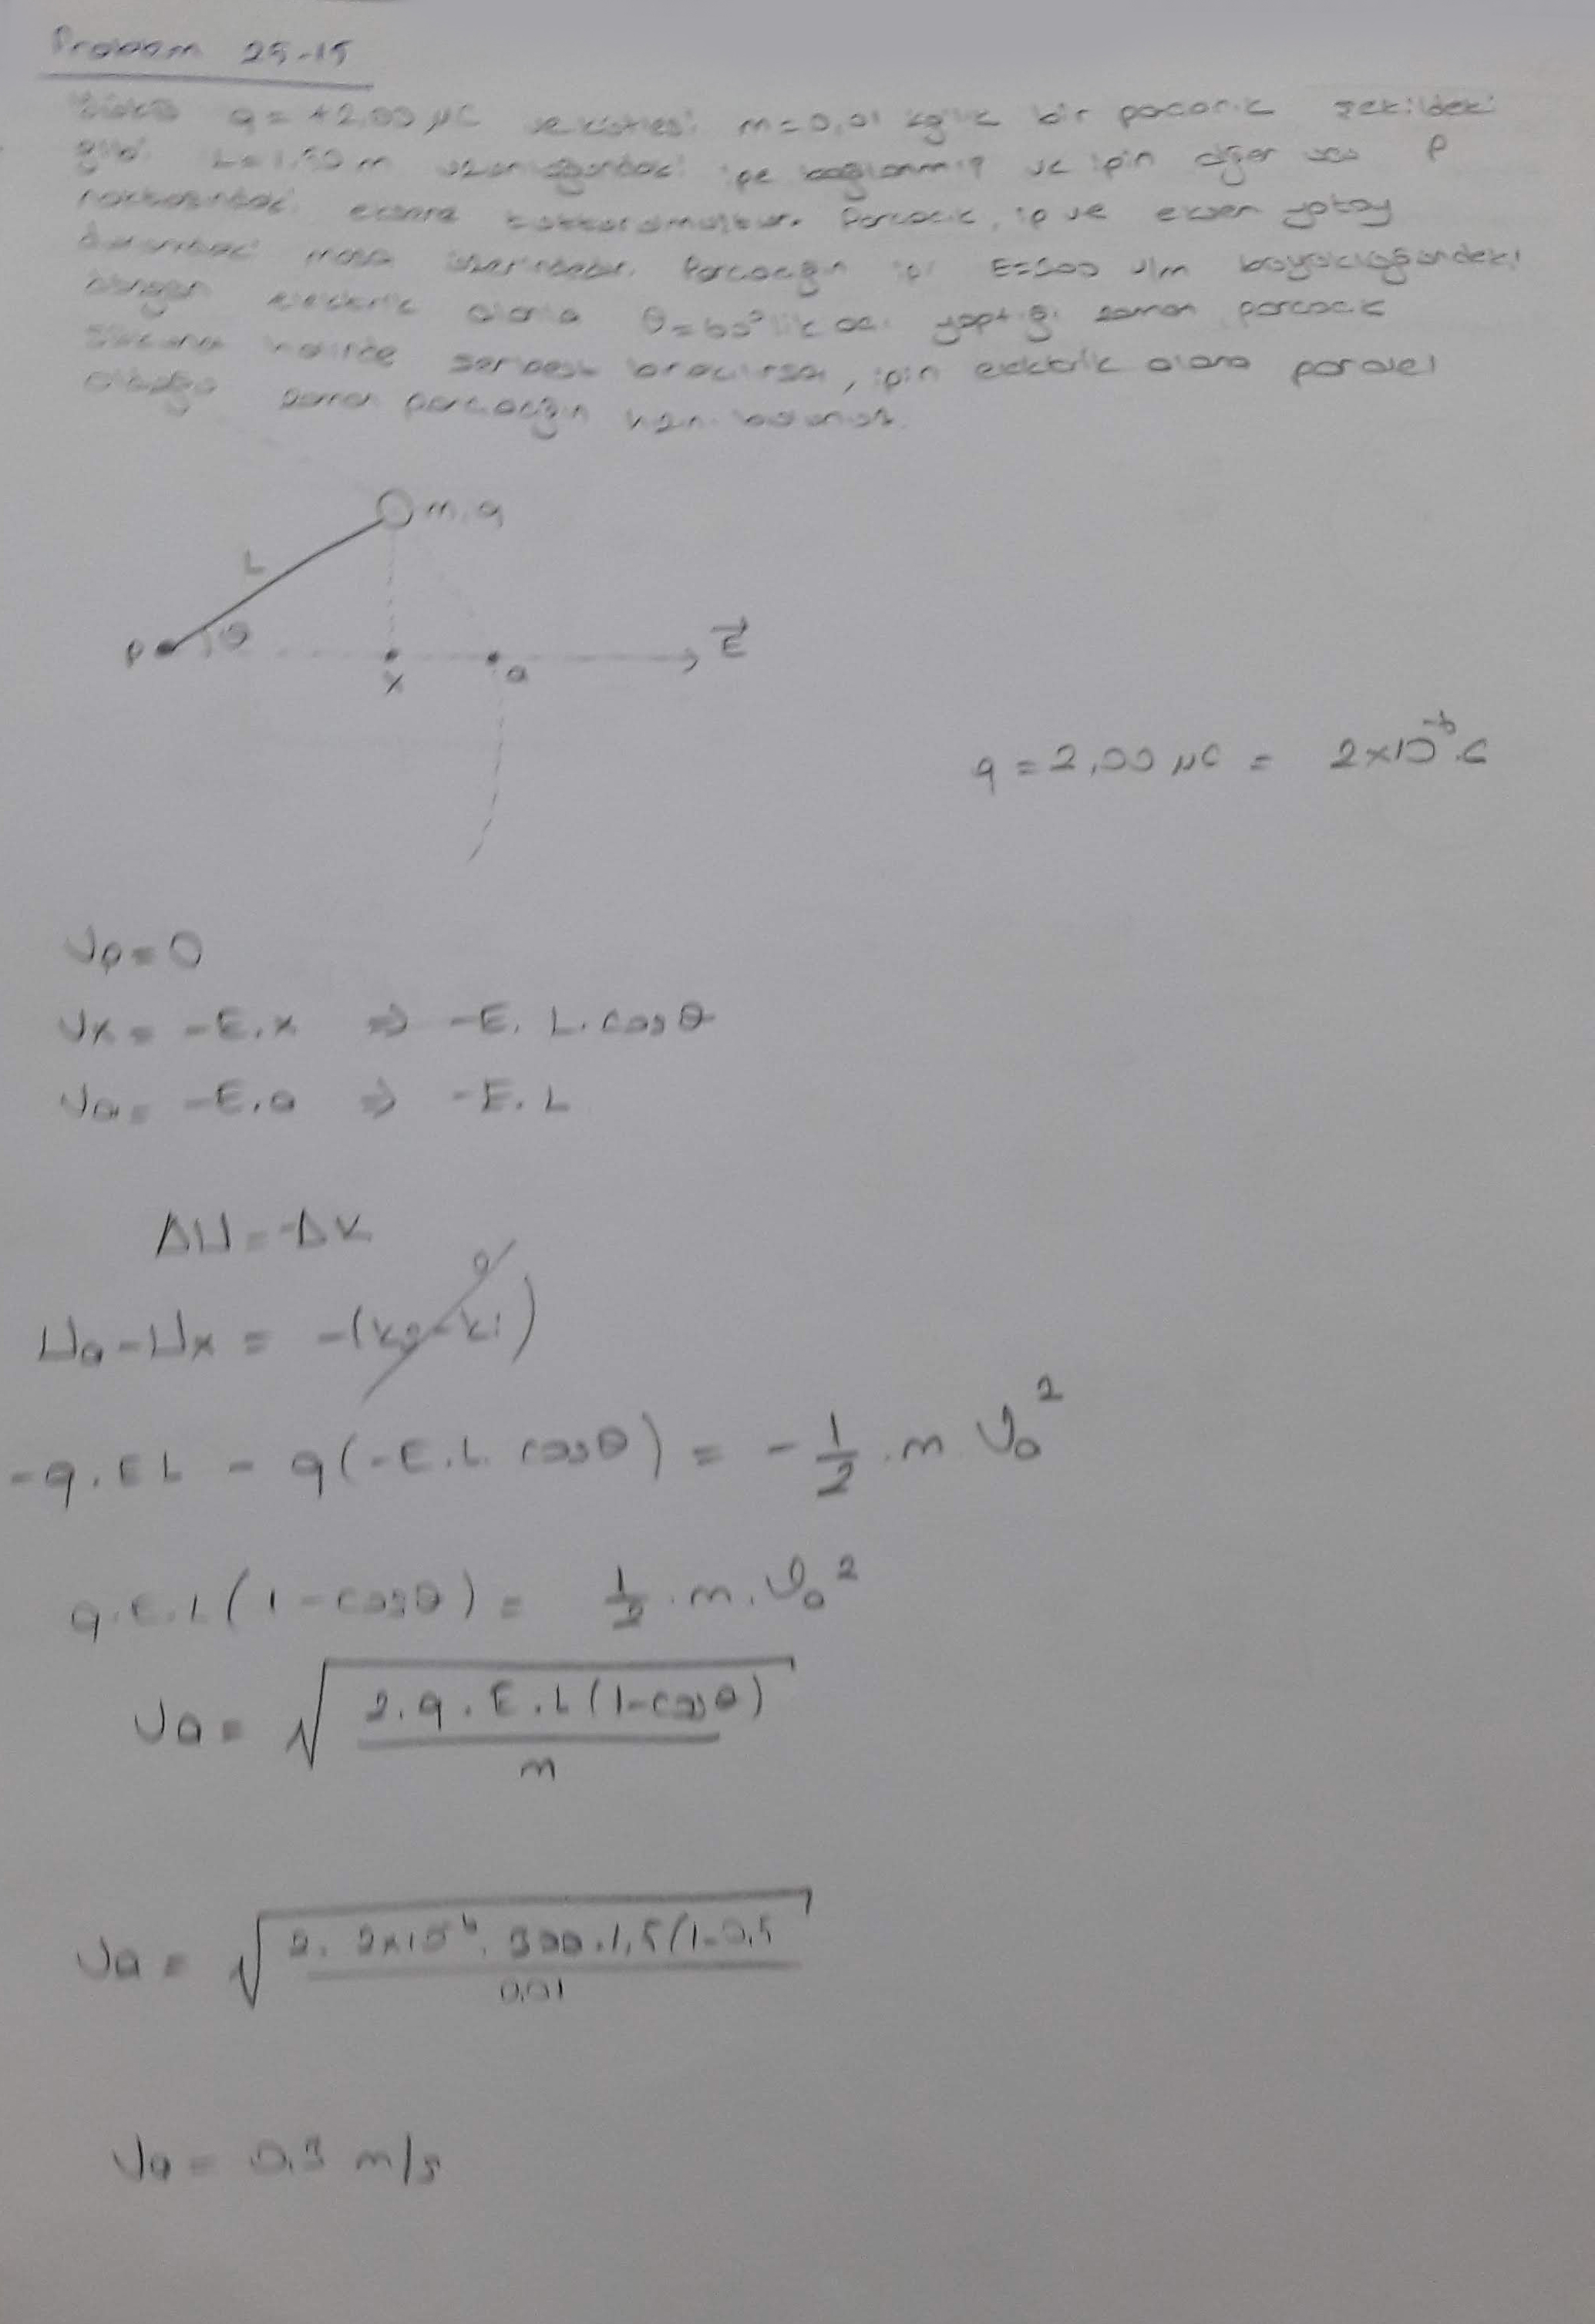 Problem 25-15
q = +2,00 μC m=0,01 kg'lık bir parçacık şekildeki
gibi L=1,50 m uzunluğundaki ipe bağlanmış ve ipin diğer ucu P
noktasındaki eksene Parçacık, ip ve eksen yatay
masa üzerindedir. Parçacığın ipi E=300 V/m büyüklüğündeki
düzgün elektrik alanla θ=60° lik açı yaptığı zaman parçacık
halde serbest bırakılırsa, ipin elektrik alana paralel
olduğu zaman parçacığın hızını bulunuz.
m,q
L
P θ x a E⃗
q = 2,00 μC = 2x10⁻⁶ C
Vp=0
Vx = -E.x ⇒ -E. L. cosθ
Va = -E.a ⇒ -E. L
ΔU = -ΔK
0
Ua-Ux = -(ks-ki)
-q.EL - q(-E.L. cosθ) = - 1/2 .m Va²
q.E.L(1-cosθ) = 1/2 .m. Va²
Va = √ 2.q.E.L(1-cosθ) / m
Va = √ 2. 2x10⁻⁶. 300.1,5(1-0,5 / 0,01
Va = 0,3 m/s